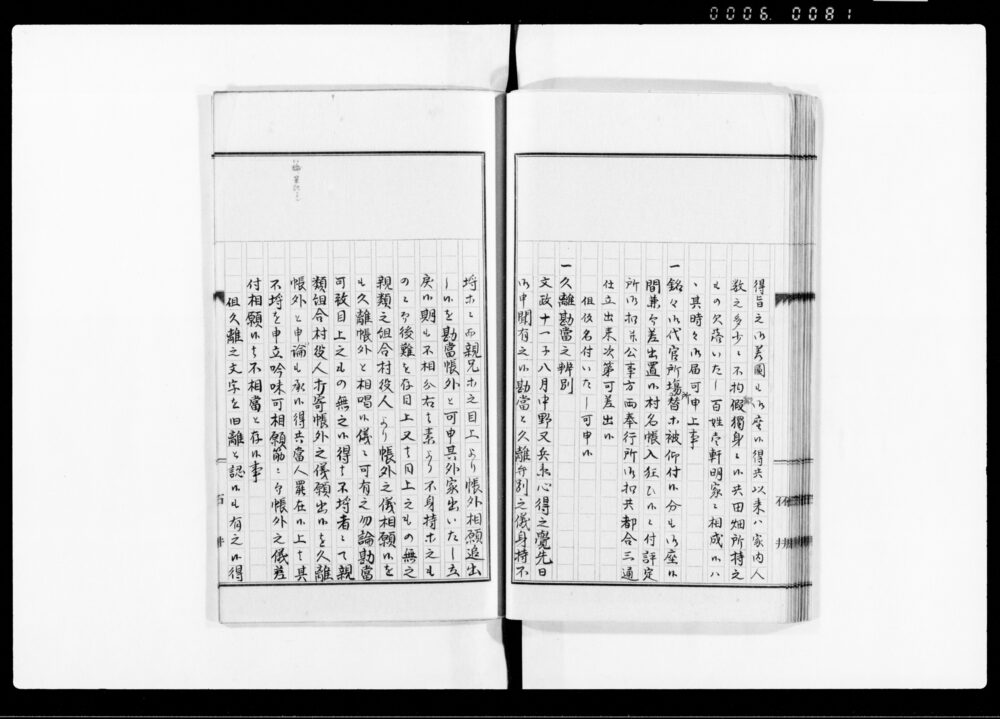 0006 0081
得旨之御差圖も御座候得共以来ハ家内人
数之多少ニ不拘假令獨身ニ候共田畑所持之
もの欠落いたし百姓壱軒明家ニ相成候ハヽ
其時々御届可申上事
一銘々御代官所場所替等被仰付候分も御座候
間兼而差出置候村名帳入狂ひ候ニ付評定
所御扣并公事方両奉行所御扣共都合三通
仕立出来次第可差出候
但仮名付いたし可申候
一久離勘當之辨別
文政十一子八月中野又兵衛心得之覺先日
御申聞有之候勘當と久離弁別之儀身持不
埒等ニ而親兄等之目上より帳外相願追出
し候を勘當帳外と可申其外家出いたし立
戻候期も不相分右も素より不身持等之も
のニ而後難を存目上又は目上之もの無之
親類之組合村役人より帳外之儀相願候を
も久離帳外と相唱候儀ニ可有之勿論勘當
可致目上之もの無之候得は不埒者ニて親
類組合村役人打寄帳外之儀願出候を久離
帳外と申論も承候得共當人罷在候上は其
不埒を申立吟味可相願筋ニ而帳外之儀差
付相願候は不相當と存候事
但久離之文字を旧離と認候も有之候得